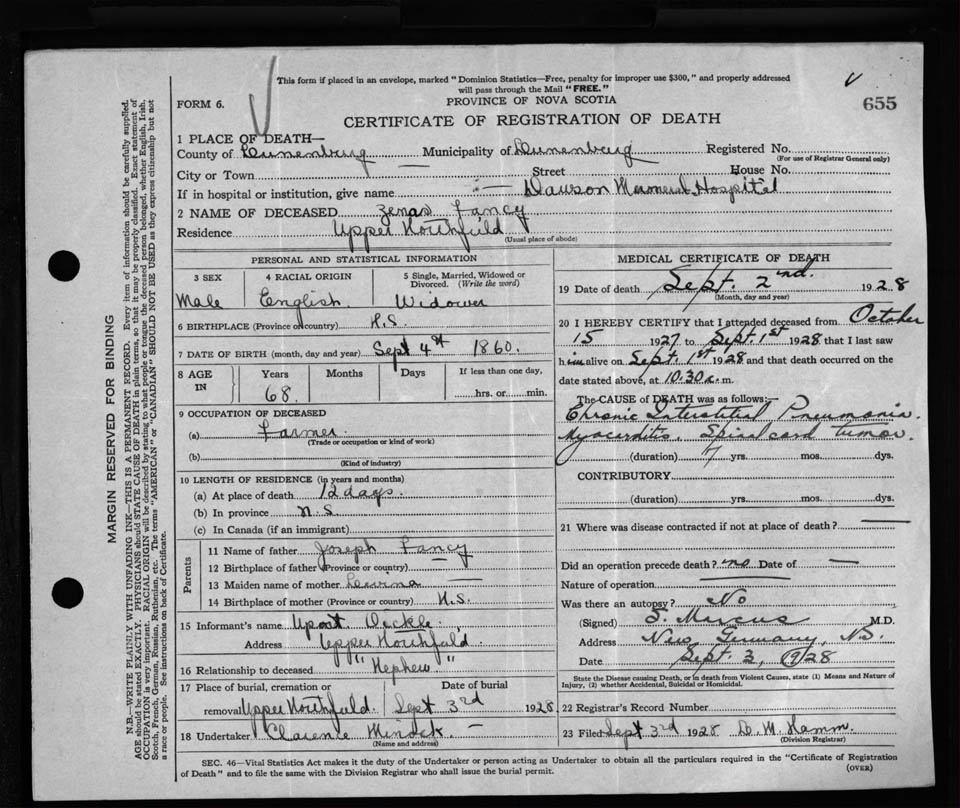 This form if placed in an envelope, marked "Dominion Statistics—Free, penalty for improper use $300," and properly addressed
will pass through the Mail "FREE."
FORM 6.
PROVINCE OF NOVA SCOTIA
655
CERTIFICATE OF REGISTRATION OF DEATH
1 PLACE OF DEATH—
County of Lunenburg Municipality of Lunenburg Registered No.
(For use of Registrar General only)
City or Town Street House No.
If in hospital or institution, give name Dawson Memorial Hospital
2 NAME OF DECEASED Zenas Fancy
Residence Upper Northfield
(Usual place of abode)
PERSONAL AND STATISTICAL INFORMATION
3 SEX 4 RACIAL ORIGIN 5 Single, Married, Widowed or
Divorced. (Write the word)
Male English Widower
6 BIRTHPLACE (Province or country) N.S.
7 DATE OF BIRTH (month, day and year) Sept 4st 1860.
8 AGE IN Years Months Days If less than one day,
68. hrs. or min.
9 OCCUPATION OF DECEASED
(a) Farmer
(Trade or occupation or kind of work)
(b)
(Kind of industry)
10 LENGTH OF RESIDENCE (in years and months)
(a) At place of death 12 days.
(b) In province N.S.
(c) In Canada (if an immigrant)
Parents
11 Name of father Joseph Fancy
12 Birthplace of father (Province or country)
13 Maiden name of mother
14 Birthplace of mother (Province or country) N.S.
15 Informant's name
Address Upper Northfield
16 Relationship to deceased "Nephew"
17 Place of burial, cremation or Date of burial
removal Upper Northfield. Sept 3rd 1928
18 Undertaker Clarence
(Name and address)
MEDICAL CERTIFICATE OF DEATH
19 Date of death Sept. 2nd. 1928
(Month, day and year)
20 I HEREBY CERTIFY that I attended deceased from October
15 1927 to Sept. 1st 1928 that I last saw
him alive on Sept. 1st 1928 and that death occurred on the
date stated above, at 10.30 a. m.
The CAUSE OF DEATH was as follows:
Chronic Interstitial Pneumonia.
Myocarditis. Spinal cord tumor.
(duration) 7 yrs. mos. dys.
CONTRIBUTORY
(duration) yrs. mos. dys.
21 Where was disease contracted if not at place of death?
Did an operation precede death? no Date of
Nature of operation
Was there an autopsy? No
(Signed) S. Marcus M.D.
Address New Germany, N.S.
Date Sept. 3, 1928
State the Disease causing Death, or in death from Violent Causes, state (1) Means and Nature of
Injury, (2) whether Accidental, Suicidal or Homicidal.
22 Registrar's Record Number
23 Filed Sept 3rd 1928 D. W. Hamm.
(Division Registrar)
SEC. 46—Vital Statistics Act makes it the duty of the Undertaker or person acting as Undertaker to obtain all the particulars required in the "Certificate of Registration
of Death" and to file the same with the Division Registrar who shall issue the burial permit.
(OVER)
MARGIN RESERVED FOR BINDING
N.B.—WRITE PLAINLY WITH UNFADING INK—THIS IS A PERMANENT RECORD. Every item of information should be carefully supplied.
AGE should be stated EXACTLY. PHYSICIANS should STATE CAUSE OF DEATH in plain terms, so that it may be properly classified. Exact statement of
OCCUPATION is very important. RACIAL ORIGIN will be described by stating to what people or tongue the deceased person belonged, whether English, Irish,
Scotch, French, German, Russian, Ruthenian, etc. The terms "AMERICAN" or "CANADIAN" SHOULD NOT BE USED as they express citizenship but not
a race or people. See instructions on back of Certificate.